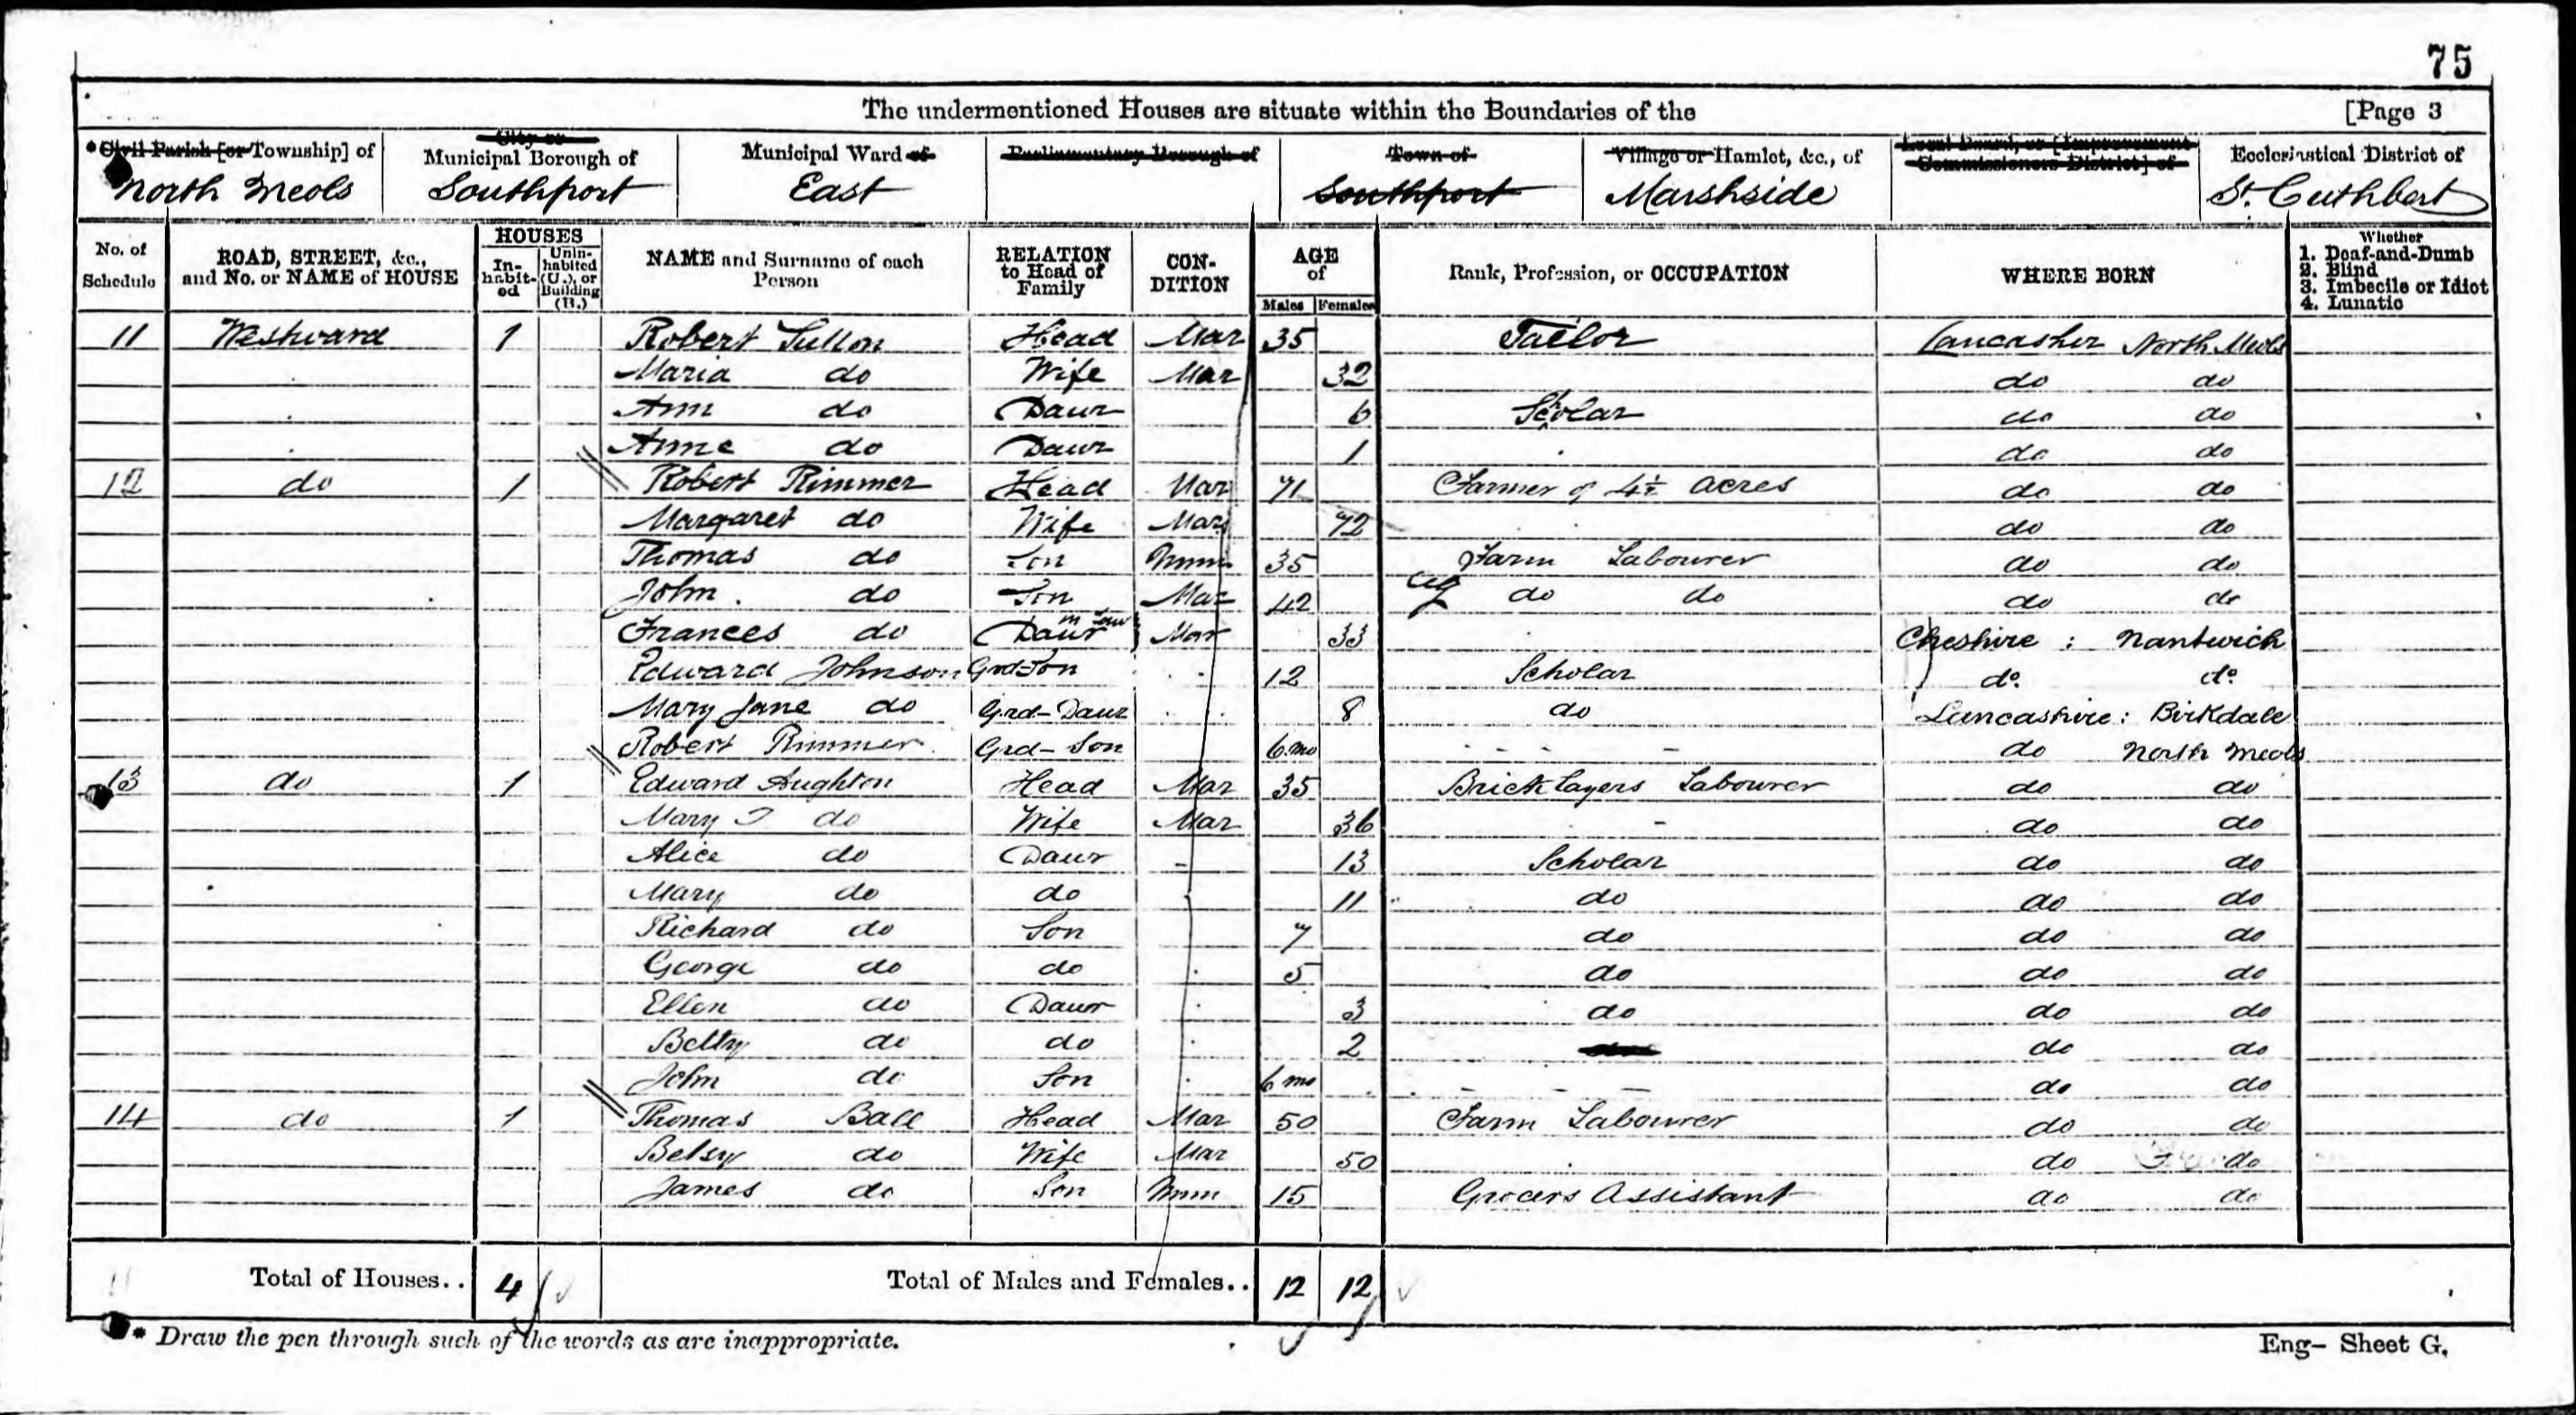 75
The undermentioned Houses are situate within the Boundaries of the [Page 3
*Civil Parish [or Township] of City or Municipal Borough of Municipal Ward of Parliamentary Borough of Town of Village or Hamlet, &c., of Local Board, or [Improvement Commissioners District] of Ecclesiastical District of
North Meols Southport East Southport Marshside St. Cuthbert
No. of Schedule ROAD, STREET, &c., and No. or NAME of HOUSE HOUSES In-habit-ed Unin-habited (U.), or Building (B.) NAME and Surname of each Person RELATION to Head of Family CON-DITION AGE of Males Females Rank, Profession, or OCCUPATION WHERE BORN Whether 1. Deaf-and-Dumb 2. Blind 3. Imbecile or Idiot 4. Lunatic
11 Westward 1 Robert Sutton Head Mar 35 Tailor Lancasher North Meols
Maria do Wife Mar 32 do do
Ann do Daur 6 Scholar do do
Anne do Daur 1 do do
12 do 1 Robert Rimmer Head Mar 71 Farmer of 4½ acres do do
Margaret do Wife Mar 72 do do
Thomas do Son Unm 35 Farm Labourer do do
John do Son Mar 42 ag do do do do
Frances do Daur in law Mar 33 Cheshire : Nantwich
Edward Johnson Grd-Son 12 Scholar do. do
Mary Jane do Grd-Daur 8 do Lancashire : Birkdale
Robert Rimmer Grd-Son 6 mo do North Meols
13 do 1 Edward Aughton Head Mar 35 Bricklayers Labourer do do
Mary do Wife Mar 36 do do
Alice do Daur 13 Scholar do do
Mary do do 11 do do do
Richard do Son 7 do do do
George do do 5 do do do
Ellen do Daur 3 do do do
Betty do do 2 do do
John do Son 6 mo do do
14 do 1 Thomas Ball Head Mar 50 Farm Labourer do do
Betsy do Wife Mar 50 do do
James do Son Unm 15 Grocers Assistant do do
Total of Houses.. 4 Total of Males and Females.. 12 12
* Draw the pen through such of the words as are inappropriate. Eng- Sheet G.